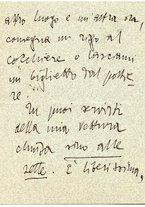 altro luogo e un'altra ora,
consegna un rigo al
cocchiere o lasciami
un biglietto dal portie
re.
Tu puoi servirti
della una vettura
chiusa sino alle
sette. È liberissima,